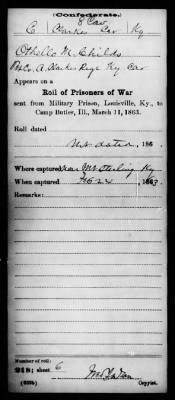 (Confederate.)
8 Cav
C Clarkes Cav Ky
Othello M. Childs
Co. A. Clarkes Regt Ky Cav
Appears on a
Roll of Prisoners of War
sent from Military Prison, Louisville, Ky., to
Camp Butler, Ill., March 11, 1863.
Roll dated
Not dated, 186 .
Where captured near Mt Sterling Ky
When captured Feb 24, 1863
Remarks:
Number of roll:
218; sheet 6
(639b) Copyist.